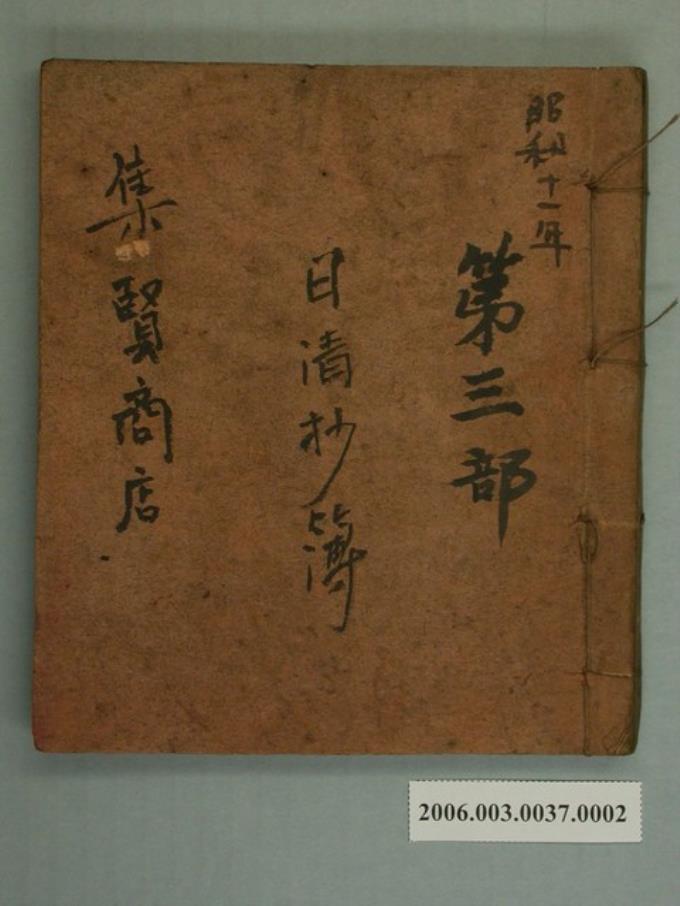 昭和十一年
第三部
日清抄簿
集賢商店
2006.003.0037.0002